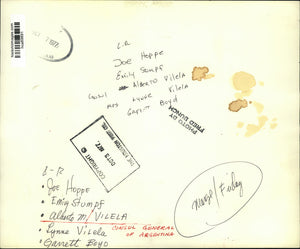 L-R
Joe Hoppe
Emily Stumpf
Alberto Vilela
Mrs Lynne Vilela
Garett Boyd
PHOTO BY
FRED BUNCH
COPYRIGHT ©
L-R
• Joe Hoppe
• Emily Stumpf
• Alberto M/ VILELA
CONSUL GENERAL
OF ARGENTINA
• Lynne Vilela
• Garrett Boyd